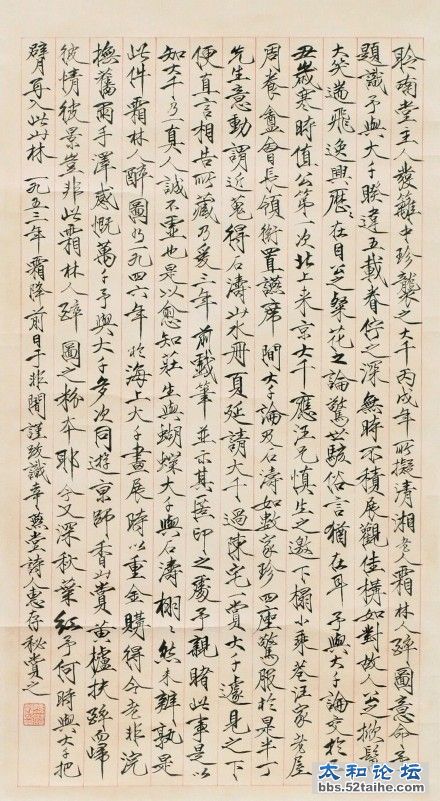 聆南堂主人發籬中珍襲之大千丙戌年所擬清湘老霜林人醉圖意命吾
題識予與大千睽違五載眷佇之深無時不積展觀佳構如對故人之掀髯
大笑遄飛逸興歷在目芝檠花之論驚世駭俗言猶在耳予與大千論交於
丑歲寒時值公第一次北上來京大千應汪慎生之邀下榻小乘巷汪家老屋
周養盦會長領銜置讌席間大千論及石濤如數家珍四座驚服於是半丁
先生意動謂近蒐得石濤山水冊頁延請大千過陳宅一賞大千遽見之下
便直言相告所藏乃爰三年前戲筆並示其接印之處予親睹此事是以
知大千乃一真人誠不虛也是以愈知莊生與蝴蝶大千與石濤栩栩然未辨孰是
此件霜林人醉圖乃一九四六年於海上大千畫展時以重金購得今老非浣
撫舊雨手澤感慨萬千予與大千多次同遊京師香山賞黃櫨扶醉而歸
彼情彼景豈非此霜林人醉圖之標本耶今又深秋葉紅予何時與大千把
臂再入此山林一九五三年霜降前日于非闇謹致識幸燕堂詩惠存秘賞之
太和论坛
bbs.52taihe.com